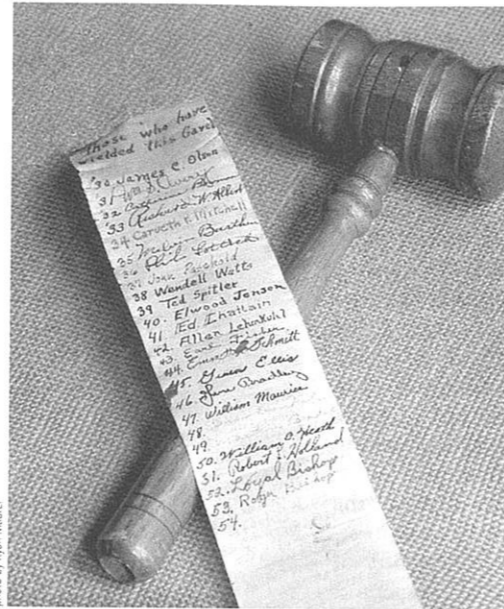 Those who have
wielded this Gavel
'30 James C Olson
'31
'32 Catherine
'33 Richard W Allert
34 Carueth K Mitchell
35 Melvin
36 Phil
37 Joan Paschold
38 Wendell Watts
39 Ted Spitler
40. Elwood Jensen
41. Ed. Chatlain
42. Allen Lehenkuhl
43. Earl Fisher
44. Schmitt
45. Gwen Ellis
46. Gene Bradley
47. William Maurice
48.
49.
50. William O. Heath
51. Robert L. Holland
52. Loyal Bishop
53. Roger Bishop
54.